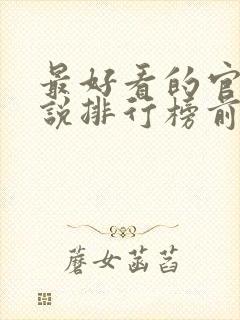 最好看的官
說排行榜前
蘑女菡萏